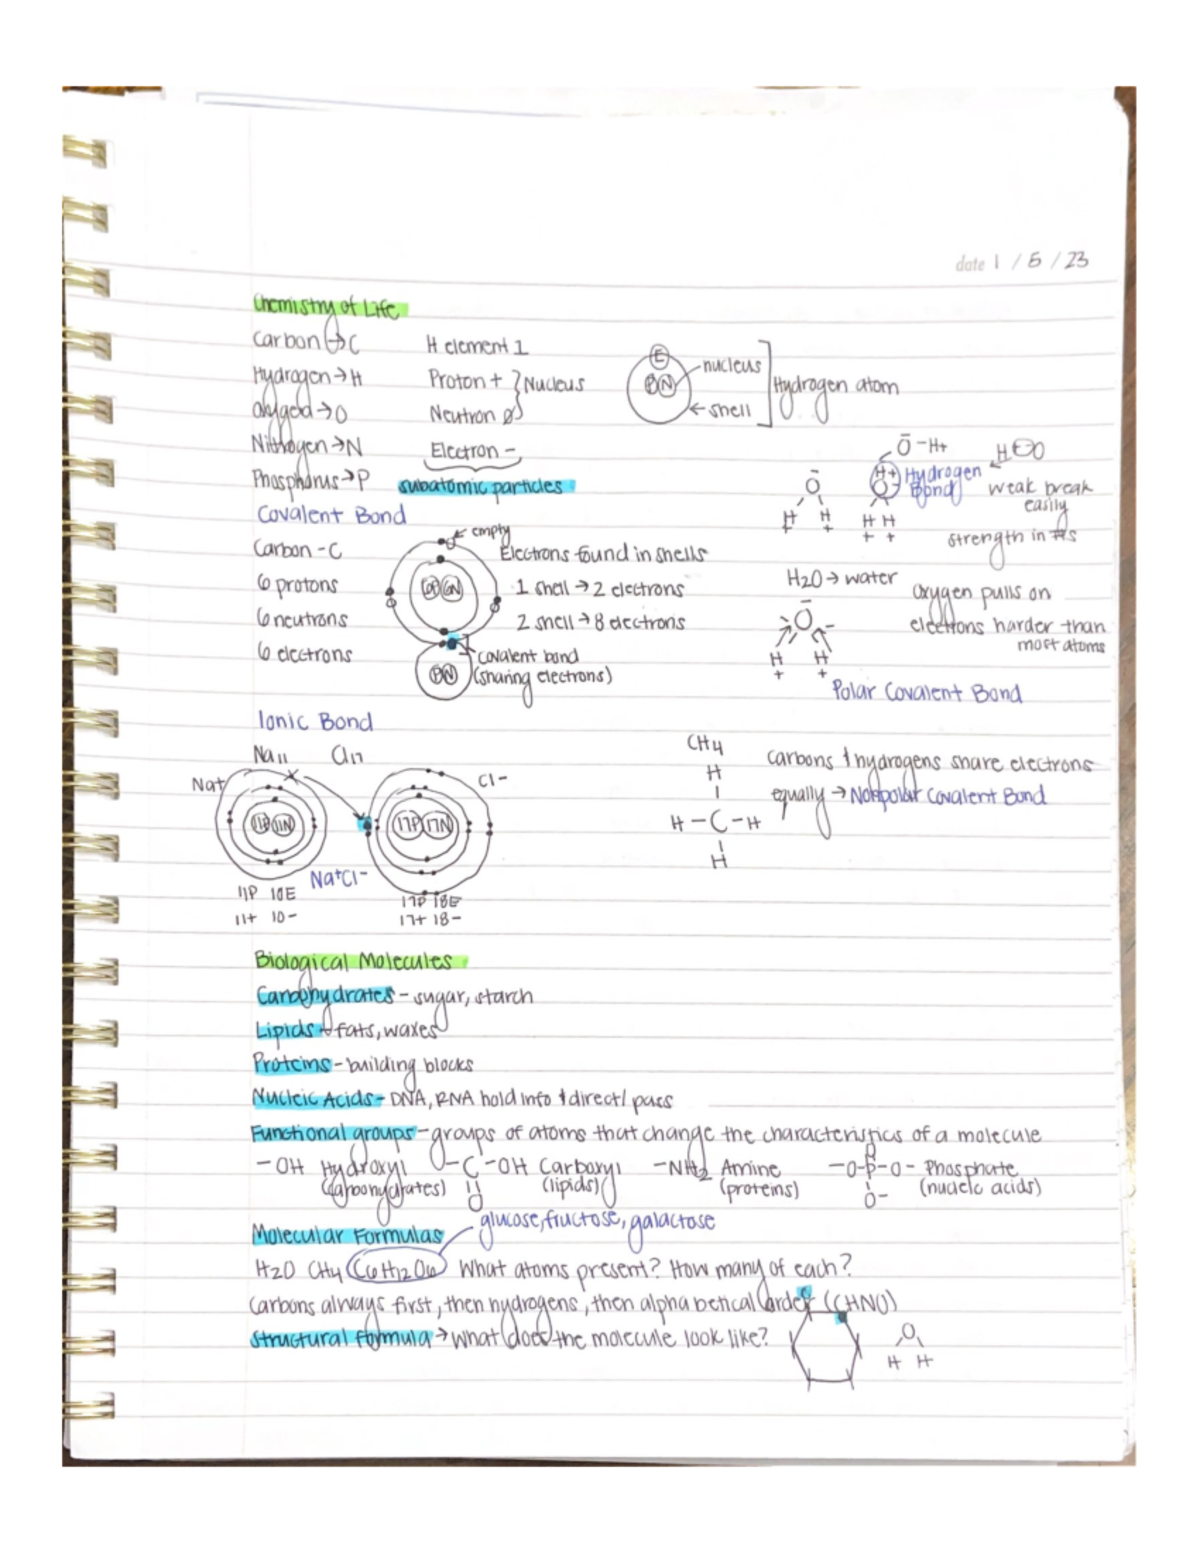 date 1 / 5 / 23
Chemistry of Life
Carbon → C
Hydrogen → H
Oxygen → O
Nitrogen → N
Phosphorus → P
H element 1
Proton + } Nucleus
Neutron Ø
Electron -
subatomic particles
E
P N
nucleus
shell
Hydrogen atom
Ō - H+
H O
H+
O
Hydrogen
Bond
H H
+ +
Ō
H H
+ +
weak break
easily
strength in #s
Covalent Bond
Carbon - C
6 protons
6 neutrons
6 electrons
empty
6P 6N
P N
Electrons found in shells
1 shell → 2 electrons
2 shell → 8 electrons
covalent bond
(sharing electrons)
H2O → water
O
H H
+ +
Oxygen pulls on
electrons harder than
most atoms
Polar Covalent Bond
Ionic Bond
Na11 Cl17
Na+
Cl-
11P 11N
17P 17N
Na+Cl-
11P 10E
11+ 10-
17P 18E
17+ 18-
CH4
H
H - C - H
H
carbons & hydrogens share electrons
equally → Nonpolar Covalent Bond
Biological Molecules
Carbohydrates - sugar, starch
Lipids - fats, waxes
Proteins - building blocks
Nucleic Acids - DNA, RNA hold info & direct/pass
Functional groups - groups of atoms that change the characteristics of a molecule
-OH Hydroxyl
(carbohydrates)
-C-OH Carboxyl
O
(lipids)
-NH2 Amine
(proteins)
O
-O-P-O- Phosphate
O-
(nucleic acids)
Molecular Formulas
glucose, fructose, galactose
H2O CH4 C6H12O6 What atoms present? How many of each?
Carbons always first, then hydrogens, then alphabetical order (CHNO)
Structural formula → What does the molecule look like?
O
H H